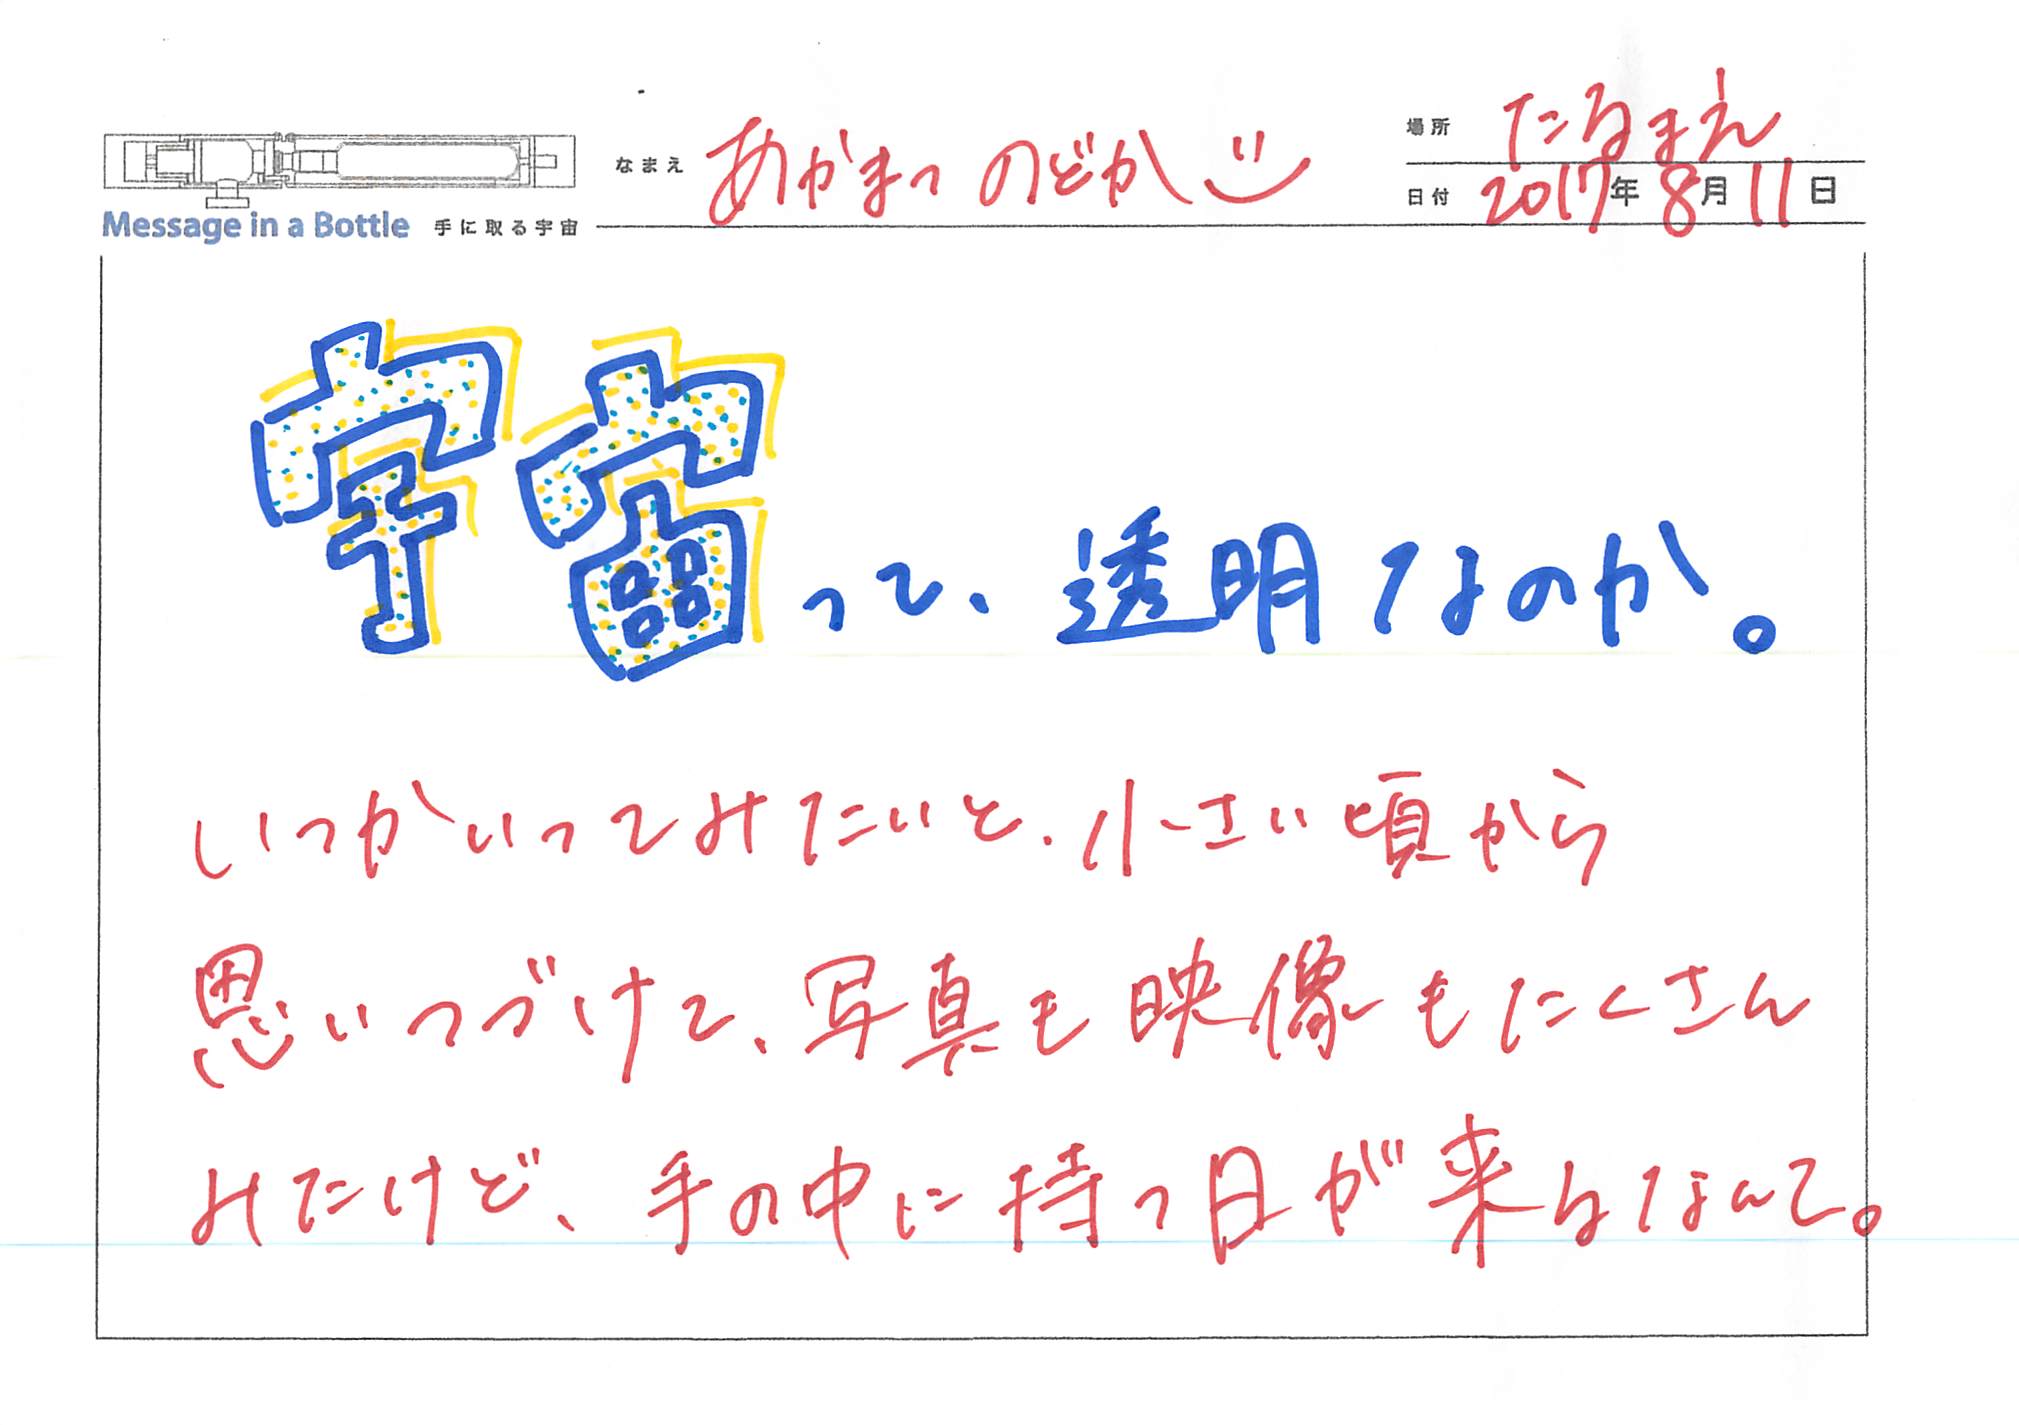 場所 たるまえ
なまえ あかまつ のどか
日付 2017年 8月 11日
Message in a Bottle 手に取る宇宙
宇宙って、透明なのか。
いつかいってみたいと、小さい頃から
思いつづけて、写真も映像もたくさん
みたけど、手の中に持つ日が来るなんて。